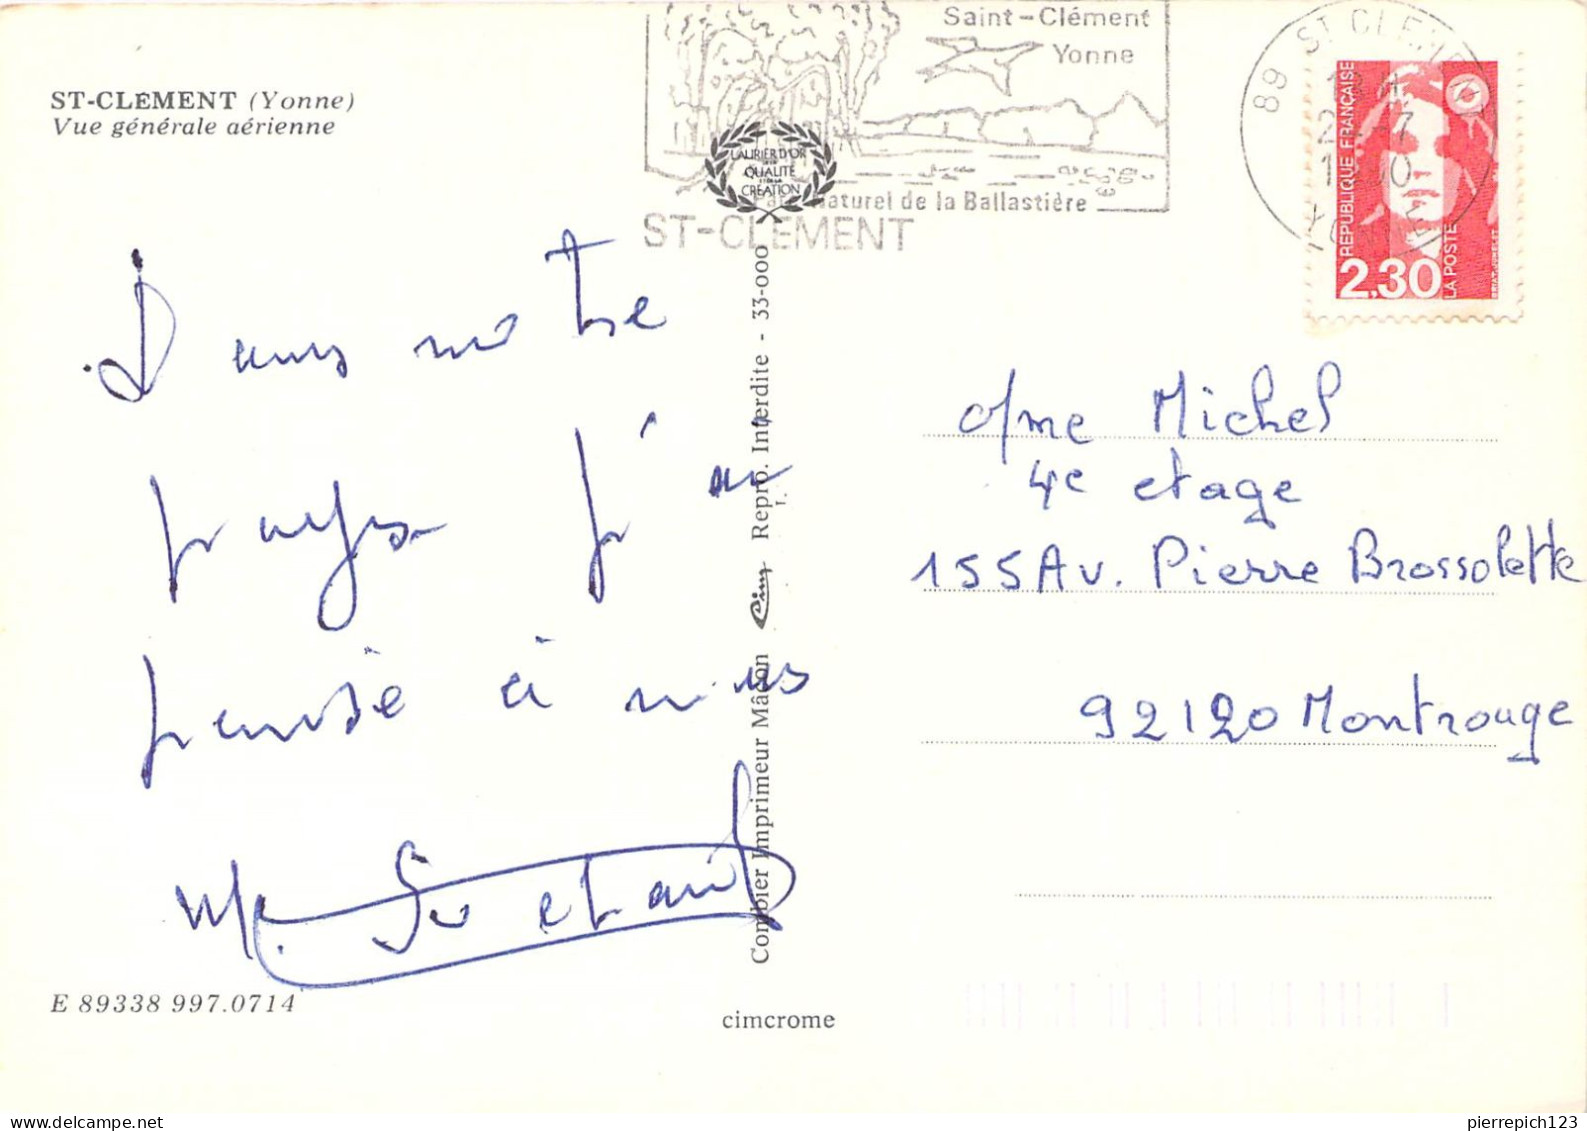 ST-CLÉMENT (Yonne)
Vue générale aérienne
Saint-Clément
Yonne
Parc Naturel de la Ballastière
ST-CLEMENT
LAURIER D'OR
QUALITÉ
CRÉATION
89 ST CLEMENT
RÉPUBLIQUE FRANÇAISE
2,30
LA POSTE
Dans notre
pays j'ai
pensé à vous
Mme Michel
4e etage
155 Av. Pierre Brossolette
92120 Montrouge
Combier Imprimeur Mâcon Cim Repro. Interdite - 33-000
E 89338 997.0714
cimcrome
pierrepich123